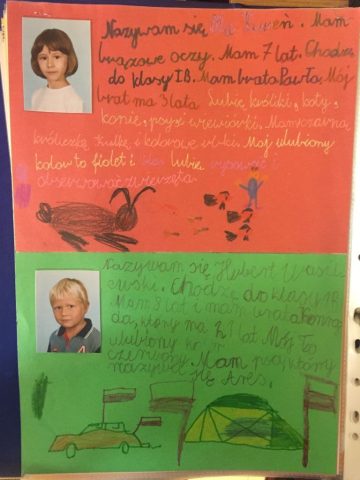 Nazywam się. Mam
brązowe oczy. Mam 7 lat. Chodzę
do klasy IB. Mam brata Pawła. Mój
brat ma 3 lata. Lubię króliki, koty,
konie, psy i wiewiórki. Mam czarną
króliczkę Kulkę i kolorowe rybki. Mój ulubiony
kolor to fiolet i. Lubię rysować i
obserwować zwierzęta.
Nazywam się Hubert Wasil-
ewski. Chodzę do klasy IB.
Mam 8 lat i mam brata
da, który ma lat. Mój
ulubiony
czerwony. Mam psa, który
nazywa
się Ares.